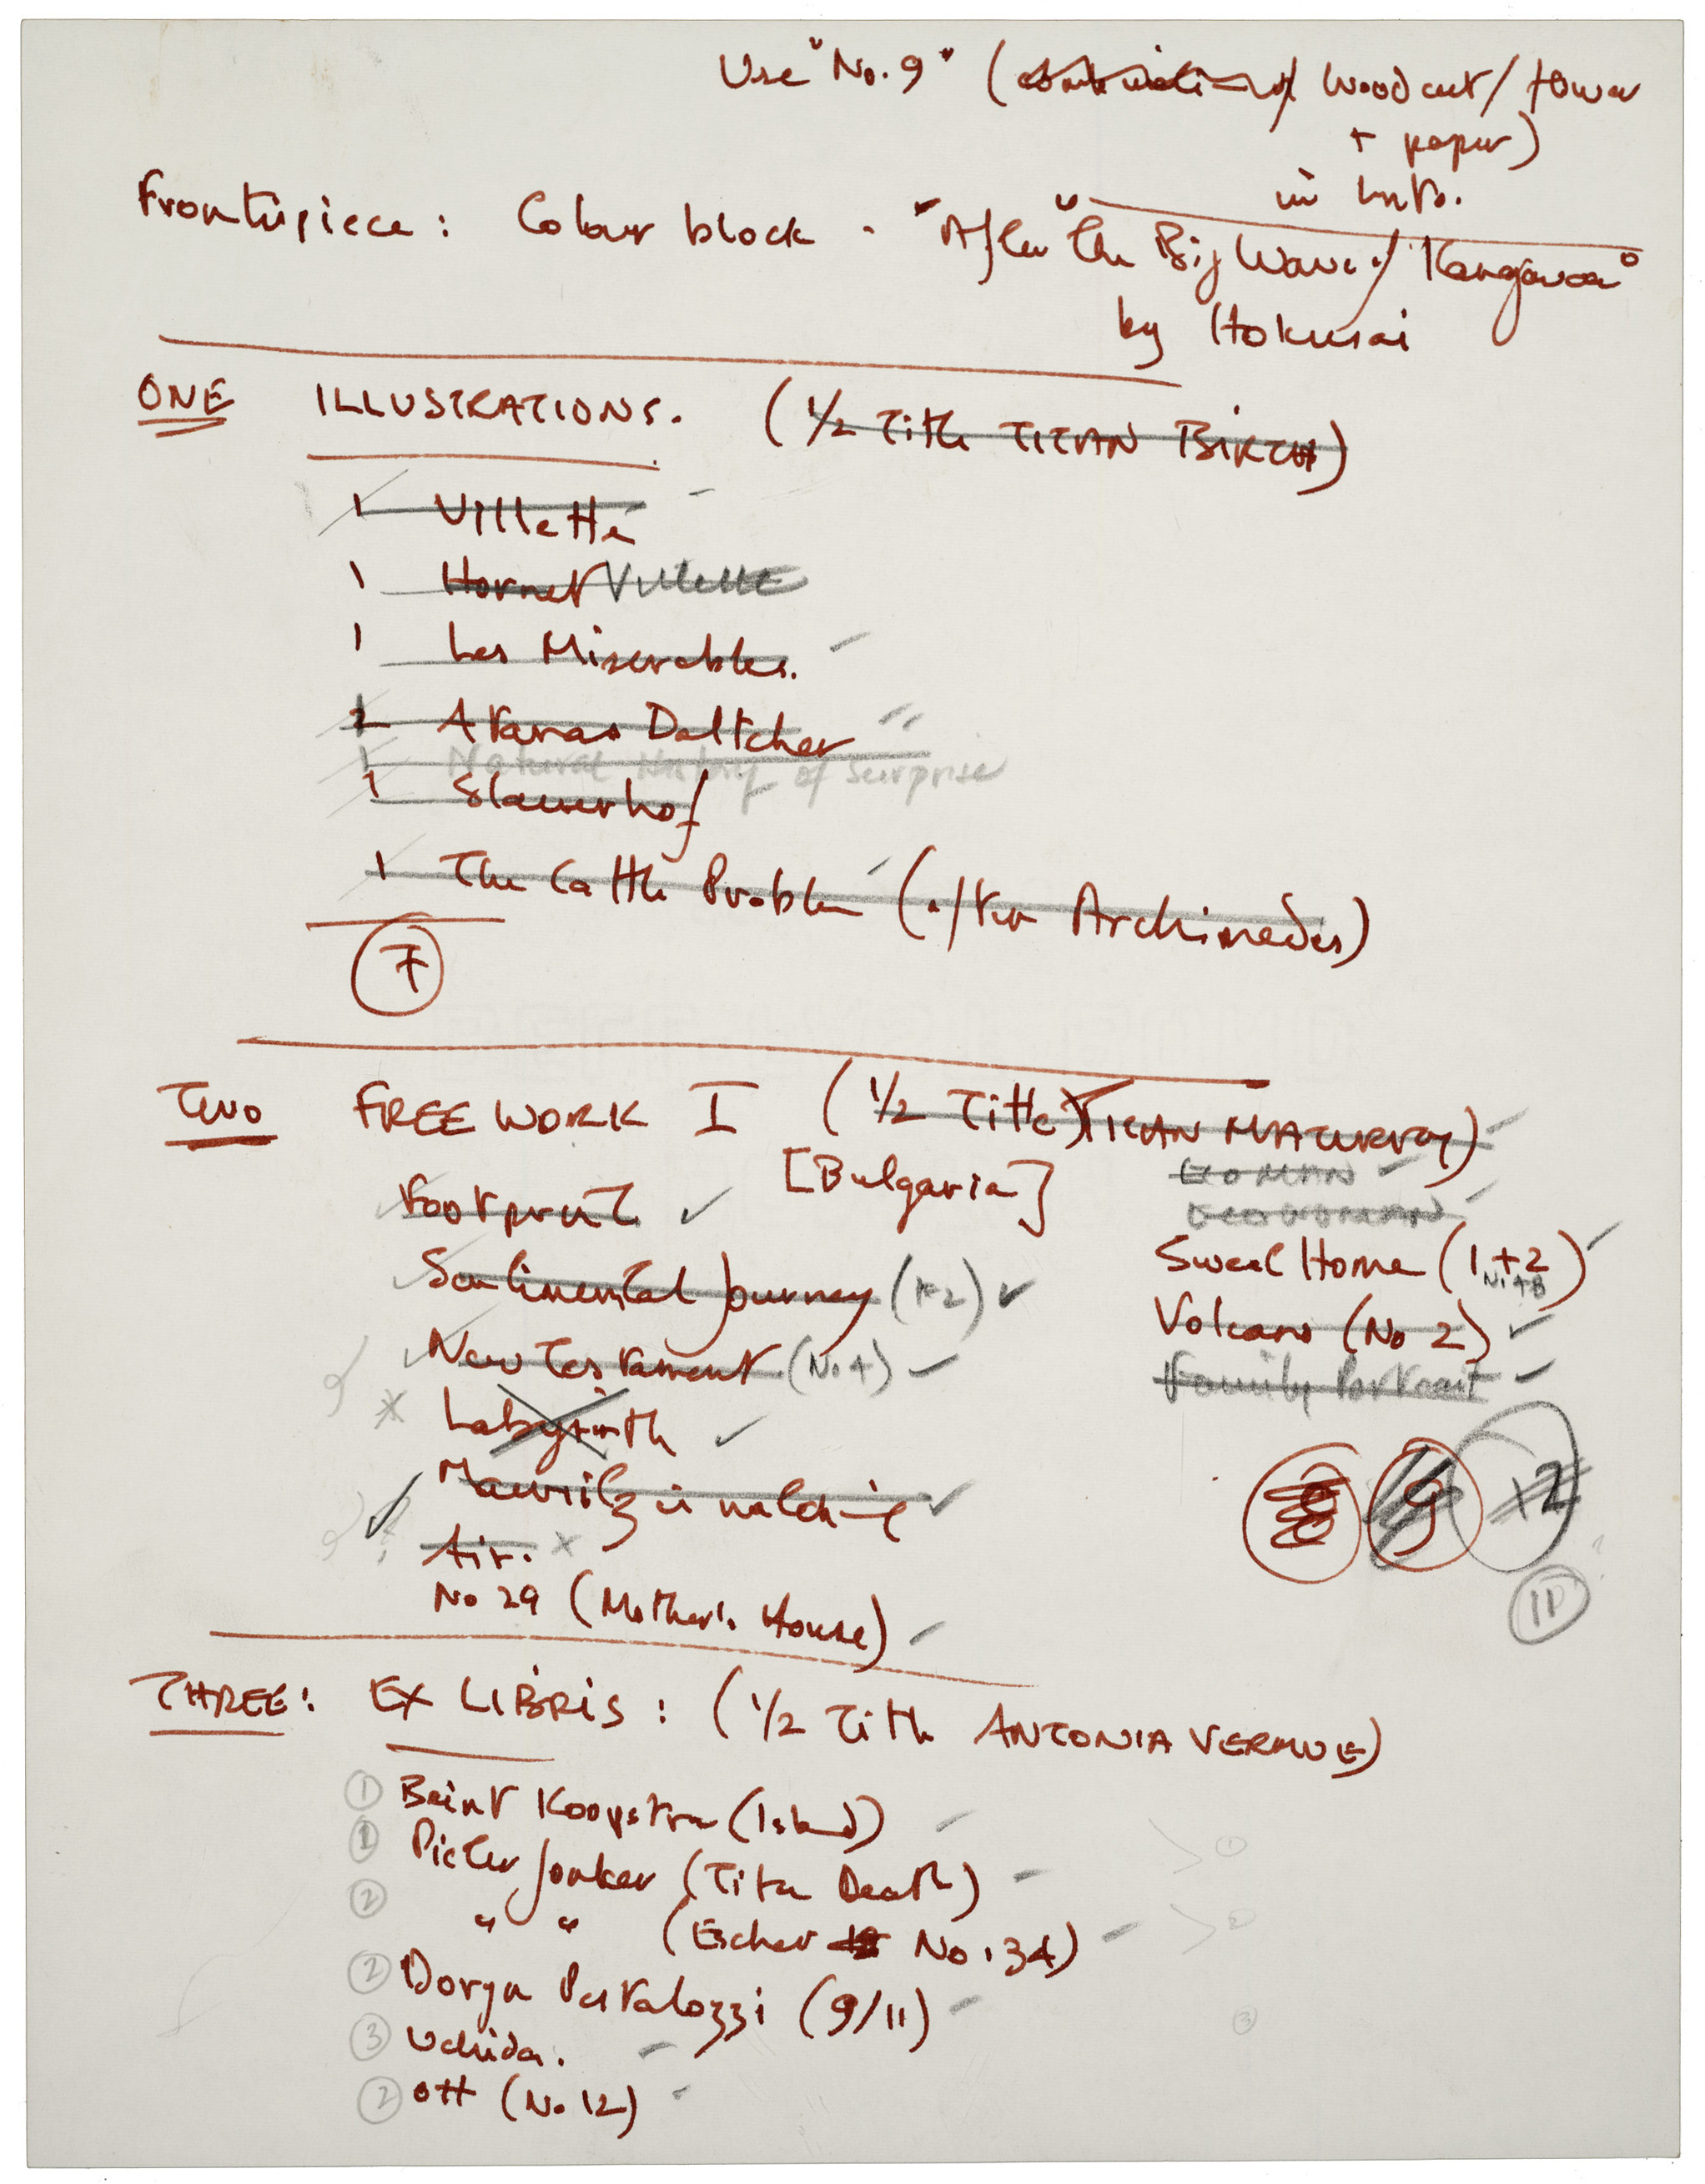 Use "No. 9" ( woodcut / tower
+ paper)
in Intro.
Frontispiece: Colour block - "After "the Big Wave / Kangawa"
by Hokusai
ONE ILLUSTRATIONS. (1/2 Title TITAN BIRTH)
1 Villette
1 Hornet Villette
1 Les Miserables.
2 Atanas Daltchev
1 Natural History of Surprise
1 Slauerhof
1 The Cattle Problem (after Archimedes)
7
TWO FREE WORK I (1/2 Title) TITAN MATURITY)
[Bulgaria]
Footprint
Sentimental Journey (1+2)
New Testament (No 4)
Labyrinth
Air.
No 29 (Mother's House)
WOMAN
Sweet Home (1+2)
Volcano (No 2)
Family Portrait
8 9 12
10
THREE: EX LIBRIS: (1/2 Title ANTONIA VERMUE)
1 Beint Koopstra (Island)
1 Pieter Jonker (Titan Death) 1
2 " " (Escher No. 34) 2
2 Dorya Pestalozzi (9/11)
3 Uchida. 3
2 Ott (No 12)